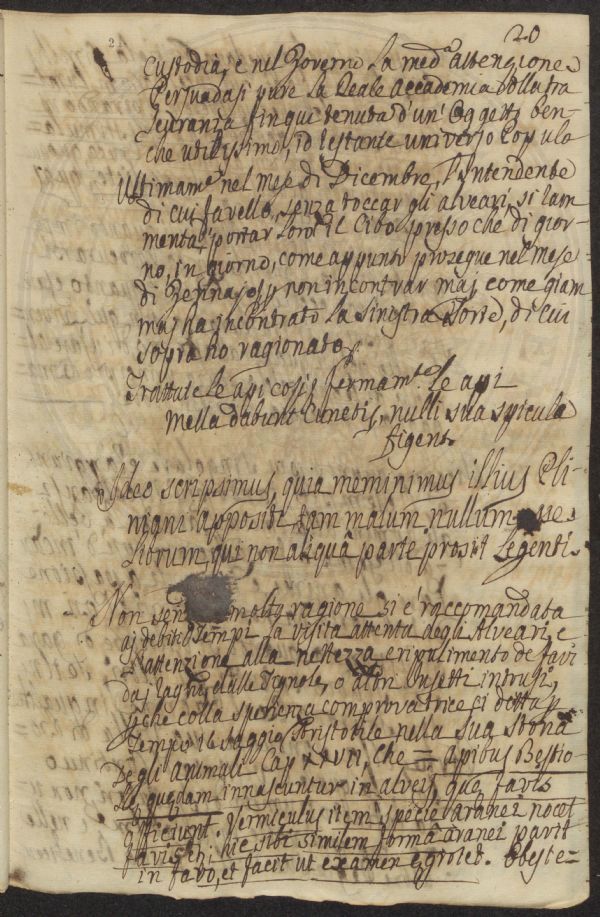 20
2
custodia, e nel Governo la med.ª attenzione.
Persuadasi pure la Reale Accademia della fra
a d'un Oggetto ben-
che utilissimo, id restante universo copula
Ultimam.e nel mese di Dicembre, l'Intendente
di cui favello, senza toccar gli alveari, si lam
menta portar loro il Cibo presso che di gior-
no, in giorno, come appunto prosegue nel mese
di Gennajo, p non incontrar maj come giam
maj ha incontrato la sinistra sorte, di cui
sopra ho ragionato.
Trattate le api così, fermam.te le api
Mella dabunt Cunctis, nulli sua spicula
figent.
Ideo scripsimus, quia meminimus illius Pli-
niani appositi tam malum nullum esse
Librum, qui non aliquâ parte prosit Legenti.
Non sen molta ragione si è raccomandata
aj debiti tempi la visita attenta degli Alveari, e
l'attenzione alla nettezza e ripulimento de favi
daj ragni, dalle Tignole, o altri Insetti intrusi,
che colla sperienza comprovatrice ci detta p
tempo il saggio Aristotile nella sua storia
Degli animali Cap XXVII, che = apibus Bestio-
le quedam innascuntur in alveis, que favis
officiunt. Vermiculus item specie aranei nocet
favis, hic sibi similem forma aranei parit
in favo, et facit ut examen egrotet. Obeste=